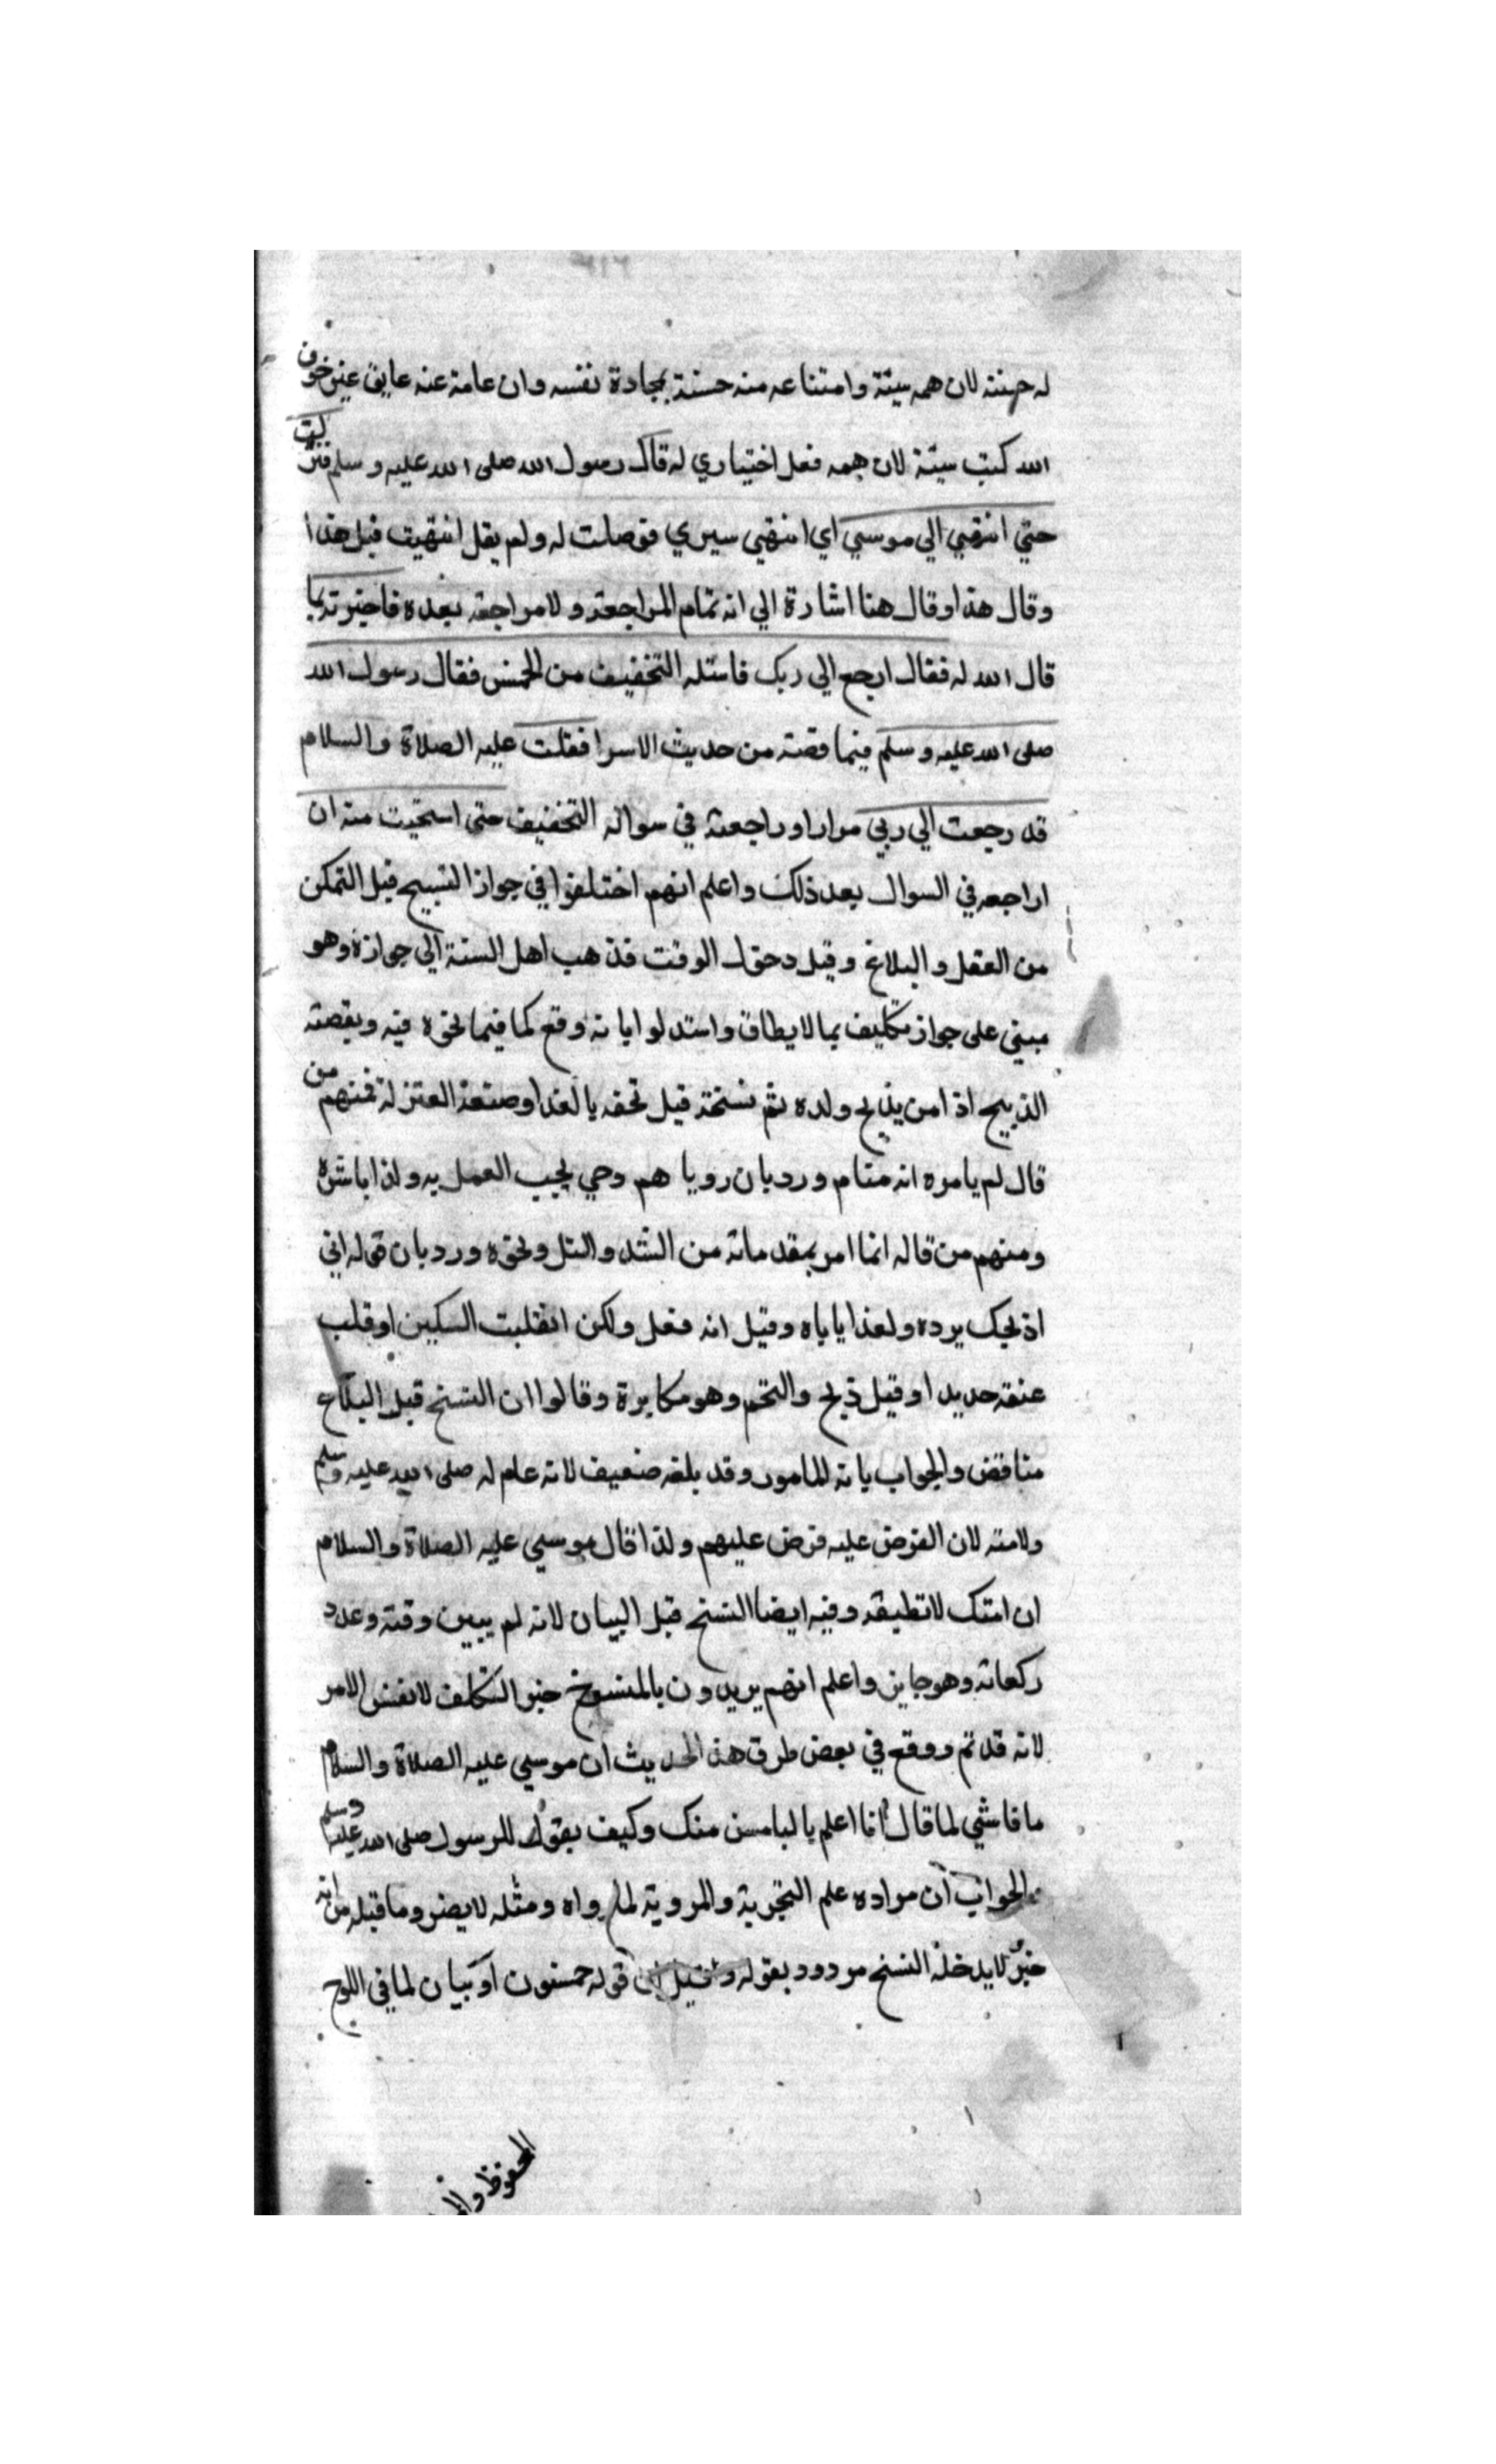 له حسنة لان همه سيئة وامتناعه منه حسنة بمجادة نفسه وان عامة عنه عايق غير خوف
الله كتب سيئة لان همه فعل اختياري له قال رسول الله صلى الله عليه وسلم فنزلت
حتي انتهي الي موسي اي انتهي سيري فوصلت له ولم يقل انتهيت قبل هذا
وقال هذا وقال هنا اشارة الي انه تمام المراجعة ولا مراجعة بعده فاخبرته بما
قال الله له فقال ارجع الي ربك فاسئله التخفيف من الخمس فقال رسول الله
صلى الله عليه وسلم فيما قصته من حديث الاسرا فقلت عليه الصلاة والسلام
قد رجعت الي ربي مرارا وراجعته في سواله التخفيف حتى استحيت منه ان
اراجعه في السوال بعد ذلك واعلم انهم اختلفوا في جواز النسيح قبل التمكن
من العقل والبلاغ وقبل دخول الوقت فذهب اهل السنة الي جوازه وهو
مبني على جواز تكليف بما لا يطاق واستدلوا بانه وقع كما فيما نحوه فيه وبقصته
الذبيح اذ امن يذبح ولده ثم نسخة قبل تحقه بالغدا وصنعة العتزلة فمنهم من
قال لم يامره انه منام ورد بان رويا هم وحي يجب العمل به ولذا باشره
ومنهم من قاله انما امر بمقدماته من الشد والتل ونحوه ورد بان قوله اني
اذبحك يرده ولغذا ياباه وقيل انه فعل ولكن انقلبت السكين او قلب
عنقه حديد او قيل ذبح والتحم وهو مكابرة وقالوا ان النسخ قبل البلاغ
مناقض والجواب بانه للمامور وقد بلغه ضعيف لانه عام له صلى الله عليه وسلم
ولامته لان الفرض عليه فرض عليهم ولذا قال موسي عليه الصلاة والسلام
ان امتك لا تطيقه وفيه ايضا النسخ قبل البيان لانه لم يبين وقته وعدد
ركعاته وهو جايز واعلم انهم يريدون بالمنسوخ خبر التكلف لا نفس الامر
لانه قد تم ووقع في بعض طرق هذا الحديث ان موسي عليه الصلاة والسلام
ما قاشي لما قال انا اعلم بالبامسن منك وكيف يقول للرسول صلى الله عليه وسلم
والجواب ان مراده علم التجربة والمروية لما رواه ومثله لا يضر وما قيله من انه
خبر لا يدخله النسخ مردود بقوله وقيل ان قوله خمسون او بيان لما في اللوح
المحفوظ